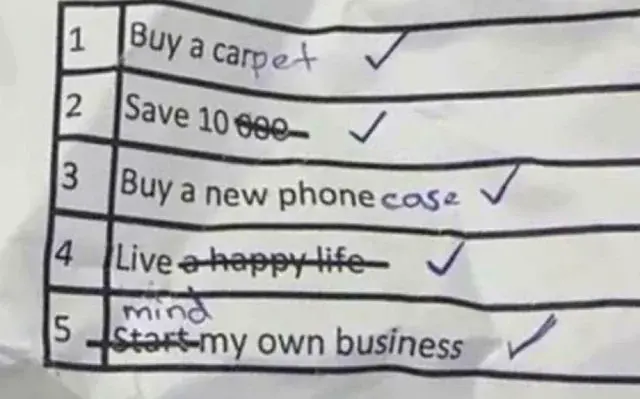 1 Buy a carpet ✓
2 Save 10 000 ✓
3 Buy a new phone case ✓
4 Live a happy life ✓
mind
5 Start my own business ✓